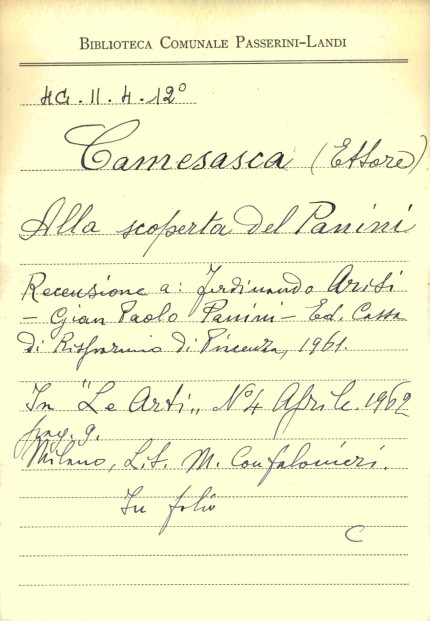 BIBLIOTECA COMUNALE PASSERINI-LANDI
HG. II. 4. 12°
Camesasca (Ettore)
Alla scoperta del Panini
Recensione a: Ferdinando Arisi
– Gian Paolo Panini – Ed. Cassa
di Risparmio di Piacenza, 1961.
In "Le Arti„ N° 4 Aprile. 1962
pag. 9.
Milano, L.S. M. Confalonieri.
In folio
C